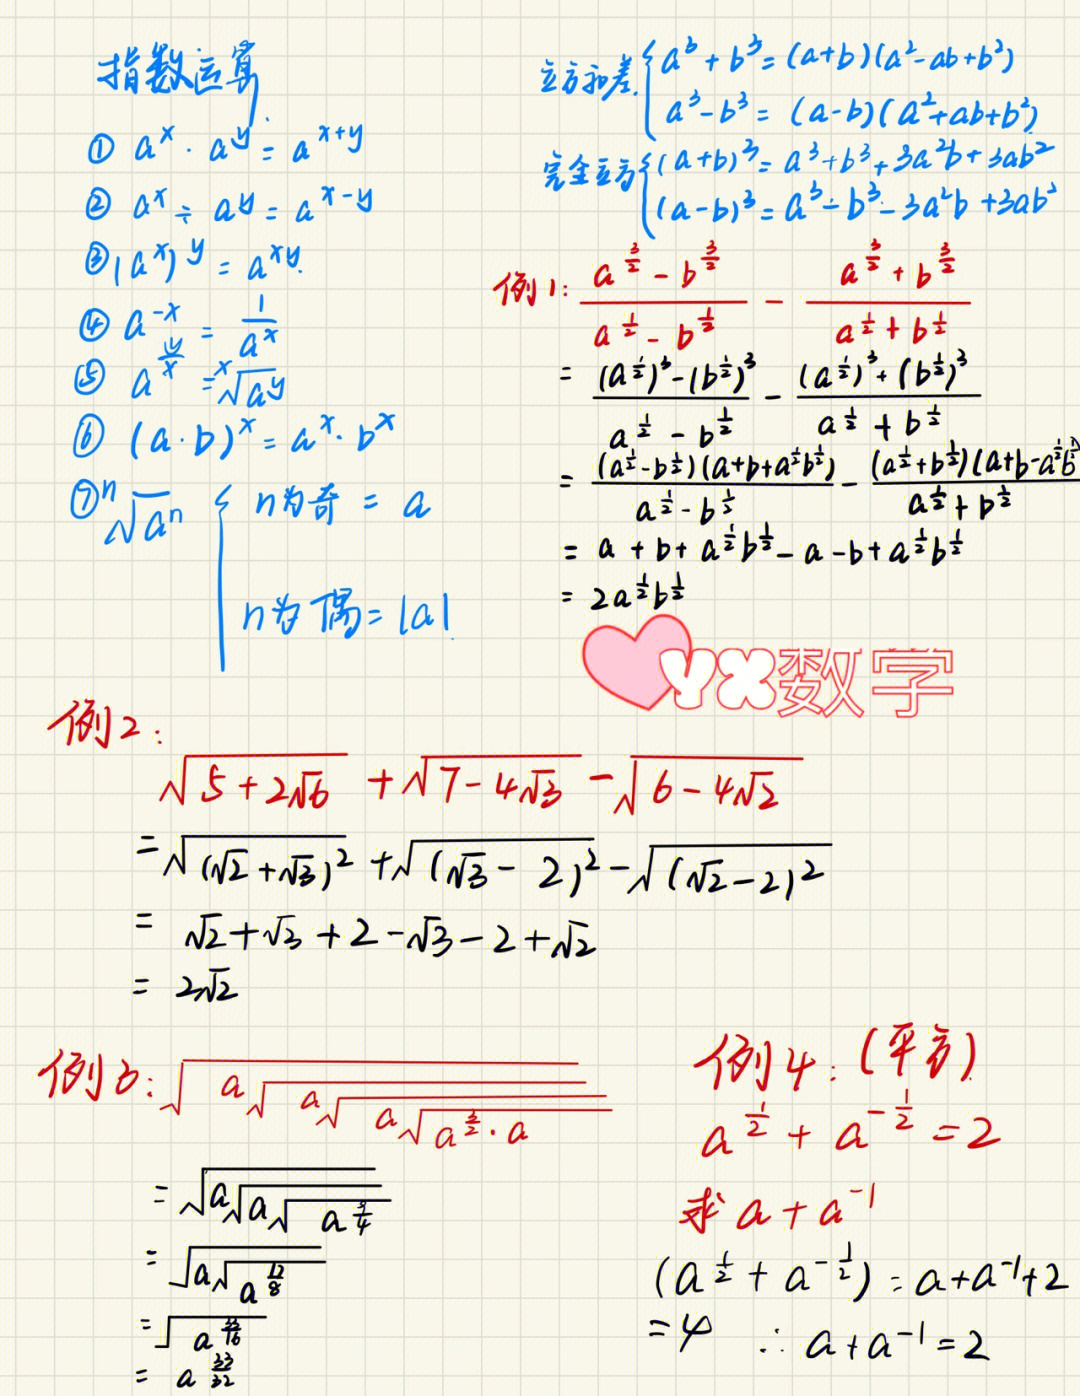 指数运算
① a^x · a^y = a^{x+y}
② a^x ÷ a^y = a^{x-y}
③ (a^x)^y = a^{xy}.
④ a^{-x} = \frac{1}{a^x}
⑤ a^{\frac{y}{x}} = \sqrt[x]{a^y}
⑥ (a·b)^x = a^x · b^x
⑦ \sqrt[n]{a^n} { n为奇 = a
n为偶 = |a|.
立方和差. { a³+b³=(a+b)(a²-ab+b²)
a³-b³=(a-b)(a²+ab+b²)
完全立方 { (a+b)³=a³+b³+3a²b+3ab²
(a-b)³=a³-b³-3a²b+3ab²
例1: \frac{a^{\frac{3}{2}}-b^{\frac{3}{2}}}{a^{\frac{1}{2}}-b^{\frac{1}{2}}} - \frac{a^{\frac{3}{2}}+b^{\frac{3}{2}}}{a^{\frac{1}{2}}+b^{\frac{1}{2}}}
= \frac{(a^{\frac{1}{2}})^3-(b^{\frac{1}{2}})^3}{a^{\frac{1}{2}}-b^{\frac{1}{2}}} - \frac{(a^{\frac{1}{2}})^3+(b^{\frac{1}{2}})^3}{a^{\frac{1}{2}}+b^{\frac{1}{2}}}
= \frac{(a^{\frac{1}{2}}-b^{\frac{1}{2}})(a+b+a^{\frac{1}{2}}b^{\frac{1}{2}})}{a^{\frac{1}{2}}-b^{\frac{1}{2}}} - \frac{(a^{\frac{1}{2}}+b^{\frac{1}{2}})(a+b-a^{\frac{1}{2}}b^{\frac{1}{2}})}{a^{\frac{1}{2}}+b^{\frac{1}{2}}}
= a+b+a^{\frac{1}{2}}b^{\frac{1}{2}}-a-b+a^{\frac{1}{2}}b^{\frac{1}{2}}
= 2a^{\frac{1}{2}}b^{\frac{1}{2}}
YX数学
例2:
\sqrt{5+2\sqrt{6}} + \sqrt{7-4\sqrt{3}} - \sqrt{6-4\sqrt{2}}
= \sqrt{(\sqrt{2}+\sqrt{3})^2} + \sqrt{(\sqrt{3}-2)^2} - \sqrt{(\sqrt{2}-2)^2}
= \sqrt{2}+\sqrt{3}+2-\sqrt{3}-2+\sqrt{2}
= 2\sqrt{2}
例3: \sqrt{a\sqrt{a\sqrt{a\sqrt{a^{\frac{3}{2}}·a}}}}
= \sqrt{a\sqrt{a\sqrt{a^{\frac{9}{4}}}}}
= \sqrt{a\sqrt{a^{\frac{17}{8}}}}
= \sqrt{a^{\frac{33}{16}}}
= a^{\frac{33}{32}}
例4: (平方)
a^{\frac{1}{2}}+a^{-\frac{1}{2}}=2
求 a+a^{-1}
(a^{\frac{1}{2}}+a^{-\frac{1}{2}}) = a+a^{-1}+2
=4 ∴ a+a^{-1}=2